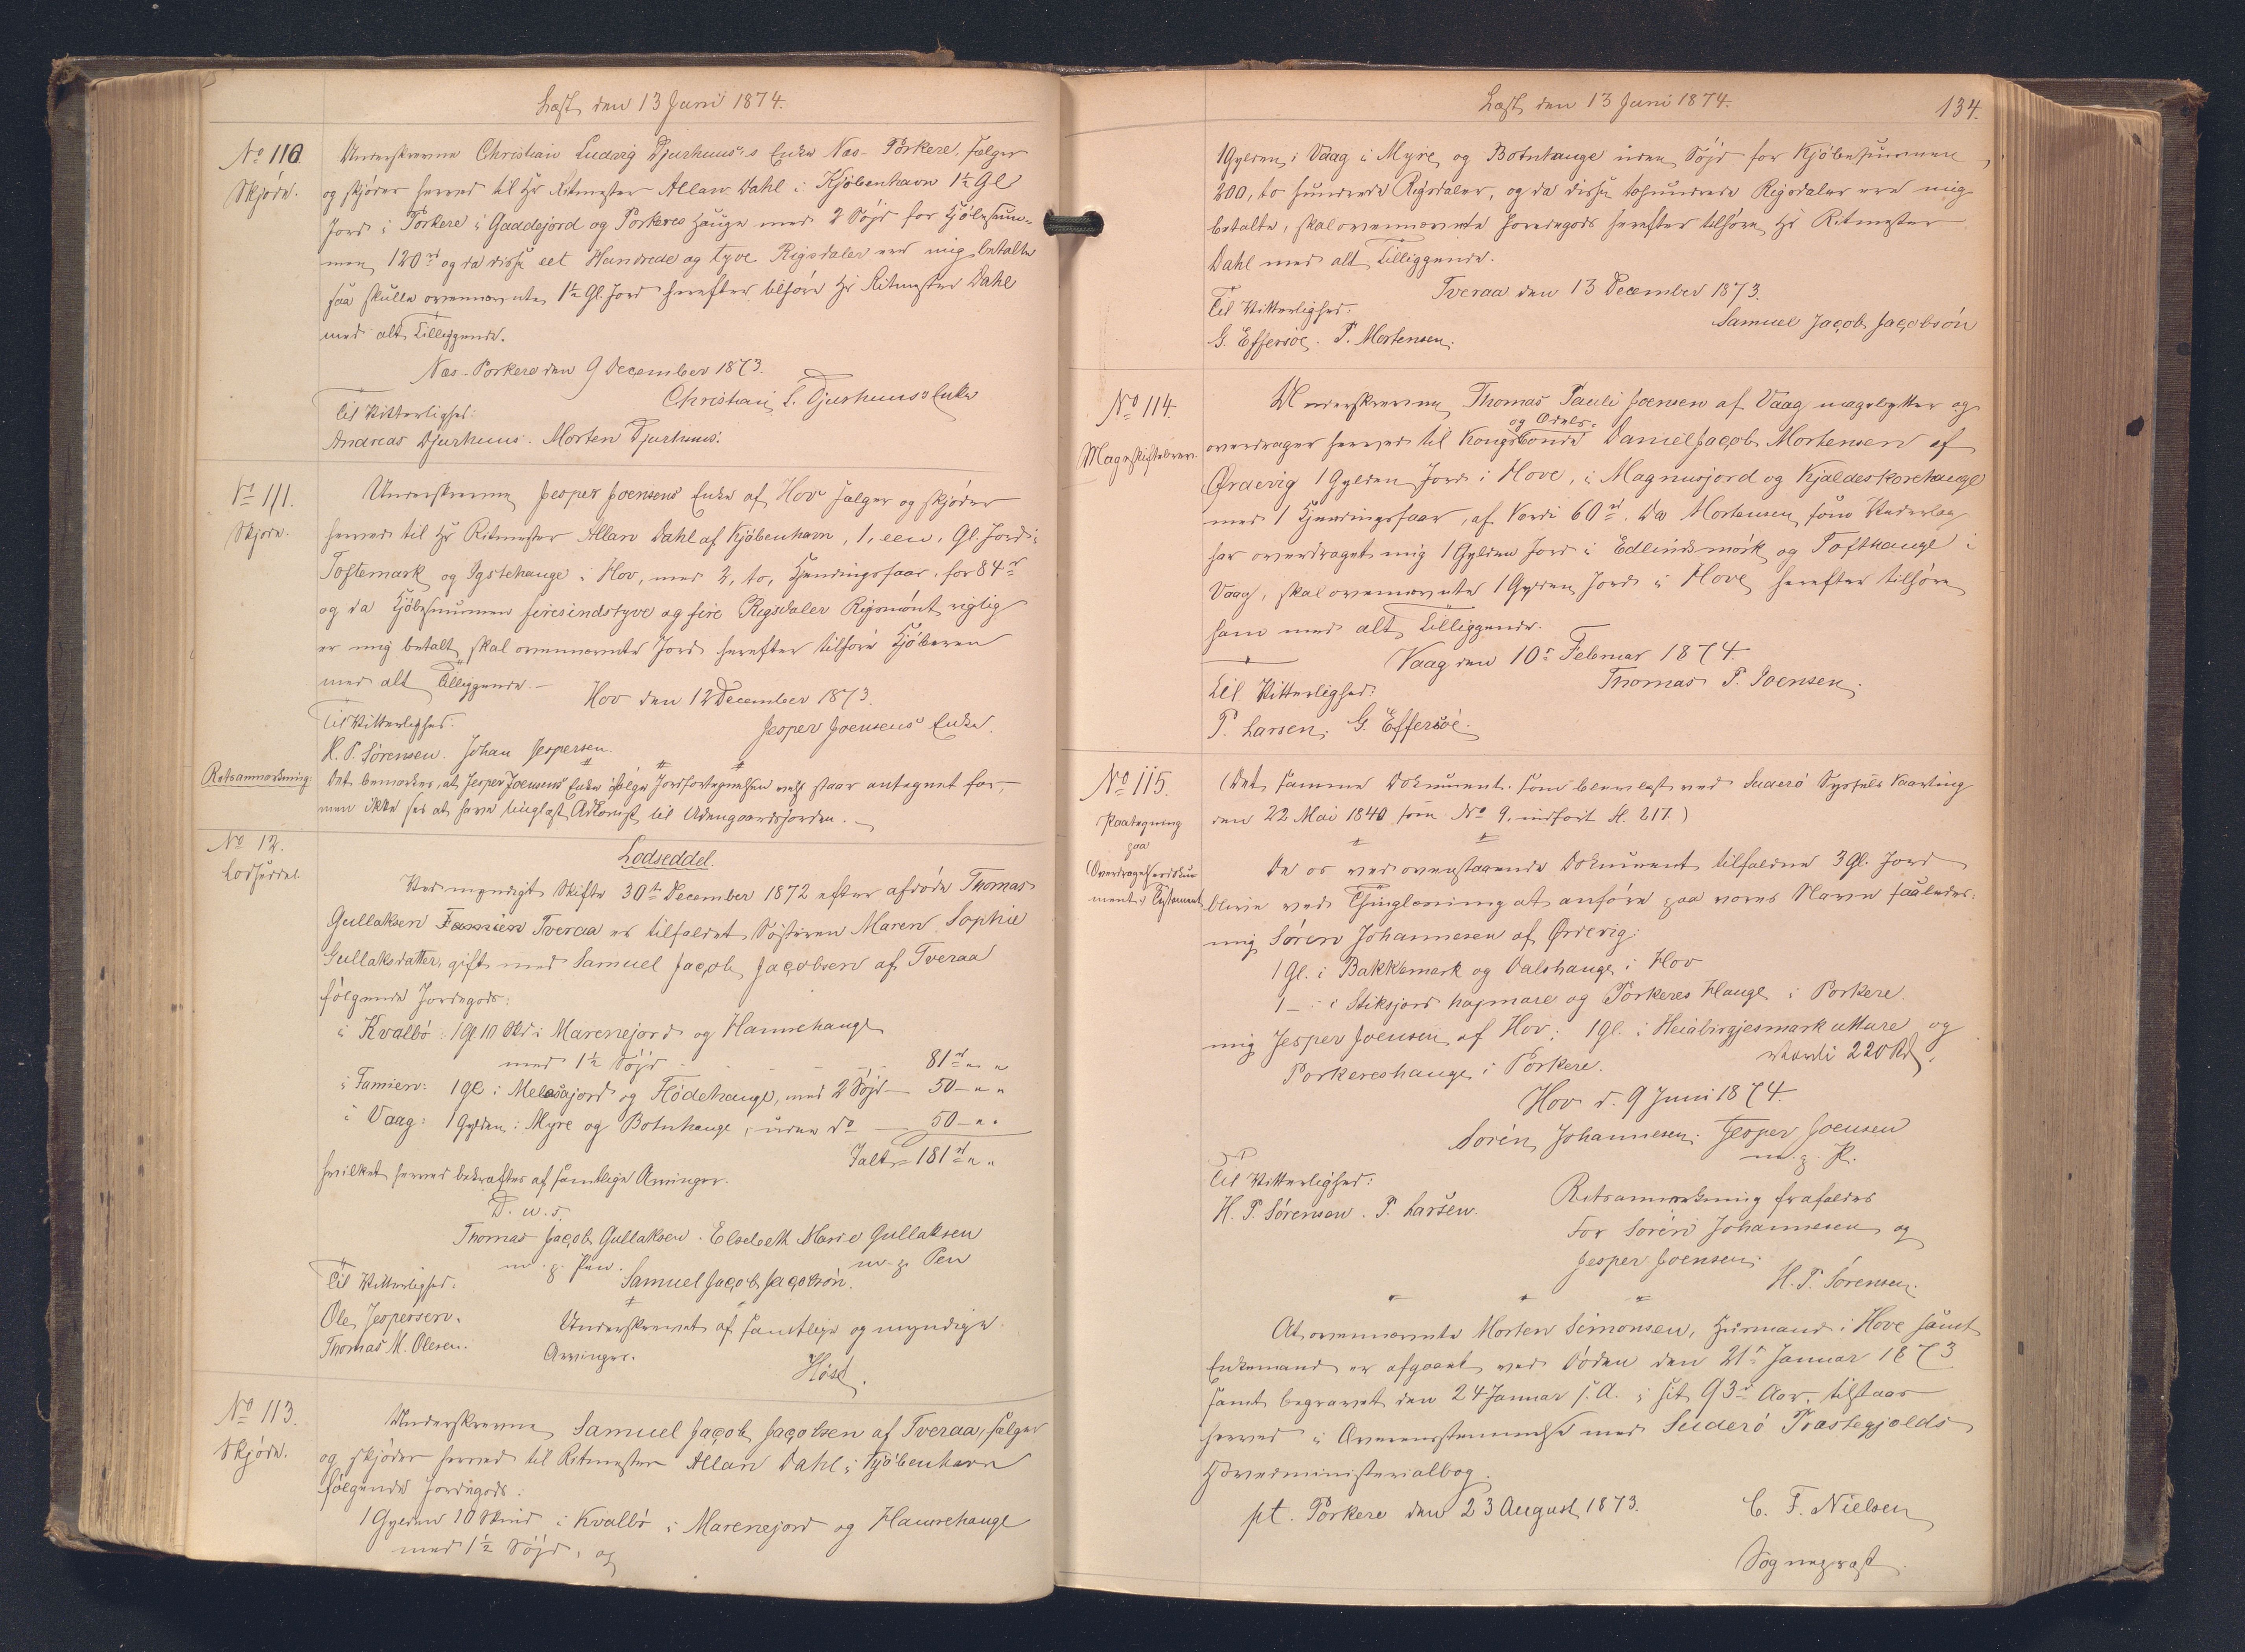 Læst den 13 Juni 1874.
No 110
Skjøde.
Underskrevne Christian Ludvig Djurhuus's Enke Næs-Porkere sælger
og skjøder herved til Hr Ritmester Allan Dahl i Kjöbenhavn 1½ Gl
Jord i Porkere i Gaddejord og Porkeres Hauge med 2 Söjd for Kjöbesum-
men 120 rd og da disse eet Hundrede og tyve Rigsdaler ere mig betalte
saa skulle ovennævnte 1½ Gl. Jord herefter tilhöre Hr Ritmester Dahl
med alt Tilliggende.
Næs-Porkere den 9 December 1873.
Christian L. Djurhuus's Enke
Til Vitterlighed:
Andreas Djurhuus. Morten Djurhuus.
No 111.
Skjøde.
Underskrevne Jesper Joensens Enke af Hov sælger og skjöder
herved til Hr Ritmester Allan Dahl af Kjöbenhavn, 1, een, Gl. Jord i
Toftemark og Igstehauge i Hov, med 2, to, Hændingsfaar, for 84 rd
og da Kjöbesummen firesindstyve og fire Rigsdaler Rigsmönt rigtig
er mig betalt, skal ovennævnte Jord herefter tilhöre Kjöberen
med alt Tilliggende.-
Hov den 12 December 1873.
Til Vitterlighed:
Jesper Joensens Enke.
H. P. Sørensen. Johan Jespersen.
Retsanmærkning:
Det bemærkes, at Jesper Joensens Enke ifølge Jordfortegnelsen vel staar antegnet for,
men ikke ses at have tinglæst Adkomst til Udengaardsjorden.
No 12.
Lodseddel.
Lodseddel.
Ved myndigt Skifte 30te December 1872 efter afdöde Thomas
Gullaksen Famien Tveraa er tilfaldet Söstren Maren Sophie
Gullaksdatter, gift med Samuel Jacob Jacobsen af Tveraa
følgende Jordegods:
i Kvalbö: 1 Gl 10 Skd i Marenejord og Hamrehauge
med 1½ Söjd - - - 81 rd " "
i Famien: 1 Gl i Melosajord og Flödehauge, med 2 Söjd — 50 - " "
i Vaag: 1 Gylden i Myre og Botnhauge, uden do — 50 - " "
Ialt = 181 rd " "
hvilket herved bekræftes af samtlige Arvinger.
D. u. s.
Thomas Jacob Gullaksen. Elsebeth Marie Gullaksen
m. p. Pen. m. p. Pen
Til Vitterlighed:
Samuel Jacob Jacobsön.
Ole Jespersen.
Underskrevet af samtlige og myndige
Thomas M. Olesen.
Arvinger.
Höst.
No 113.
Skjøde.
Underskrevne Samuel Jacob Jacobsen af Tveraa, sælger
og skjöder herved til Ritmester Allan Dahl i Kjöbenhavn
følgende Jordegods:
1 Gylden 10 Skind i Kvalbö i Marenejord og Hamrehauge
med 1½ Söjd, og
Læst den 13 Juni 1874.
134.
1 Gylden i Vaag i Myre og Botnhauge uden Söjd for Kjöbesummen
200, to hundrede Rigsdaler, og da disse tohundrede Rigsdaler ere mig
betalte, skal ovennævnte Jordegods herefter tilhöre Hr Ritmester
Dahl med alt Tilliggende.
Tveraa den 13 December 1873.
Til Vitterlighed:
Samuel Jacob Jacobsön
G. Effersöe. P. Mortensen.
No 114.
Mageskiftebrev.
Underskrevne Thomas Pauli Joensen af Vaag magebytter og
og Odels-
overdrager herved til Kongsbonde Daniel Jacob Mortensen af
Ørdevig 1 Gylden Jord i Hove, i Magnusjord og Kjaldeskorehauge
med 1 Hændingsfaar, af Værdi 60 rd. Da Mortensen som Vederlag
har overdraget mig 1 Gylden Jord i Edlindsmørk og Tofthauge i
Vaag, skal ovennævnte 1 Gylden Jord i Hove herefter tilhöre
ham med alt Tilliggende.
Vaag den 10de Februar 1874.
Til Vitterlighed:
Thomas P. Joensen.
P. Larsen. G. Effersöe.
No 115.
Paategning
paa
(Overdragelsesdoku
ment) Testament
(Det samme Dokument som blev læst ved Suderö Syssels Vaarting
den 22 Mai 1840 som No 9, indfört fl. 217.)
De os ved ovenstaaende Dokument tilfaldne 3 Gl. Jord
blive ved Thinglæsning at anføre paa vores Navn saaledes:
mig Sören Johannesen af Ørdevig:
1 Gl. i Bakkemark og Dalshauge i Hov
1 - : i Stiksjord hapmare og Porkeres Hauge i Porkere.
mig Jesper Joensen af Hov: 1 Gl. i Heiabirgjesmark utture og
Porkereshauge i Porkere. Værdi 220 Rd.
Hov d. 9 Juni 1874.
Sorén Johannesen. Jesper Joensen
m. p. P.
Til Vitterlighed:
H. P. Sörensen. P. Larsen.
Retsanmærkning frafaldes
For Sorén Johannesen og
Jesper Joensen.
H. P. Sörensen.
At ovennævnte Morten Simonsen, Huusmand i Hove samt
Enkemand er afgaaet ved Döden den 21de Januar 1873
samt begravet den 24 Januar s. A. i sit 93de Aar, tilstaas
herved i Overensstemmelse med Suderö Præstegjelds
Hovedministerialbog.
pt. Porkere den 23 August 1873.
C. F. Nielsen
Sognepræst.